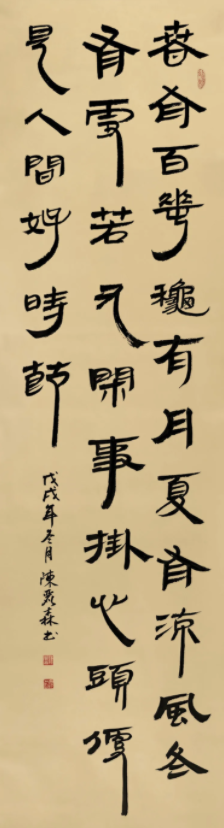 春有百華龝有月夏有涼風冬
有雪若无閑事掛心頭便
是人間好時節
戊戌年冬月陳森书